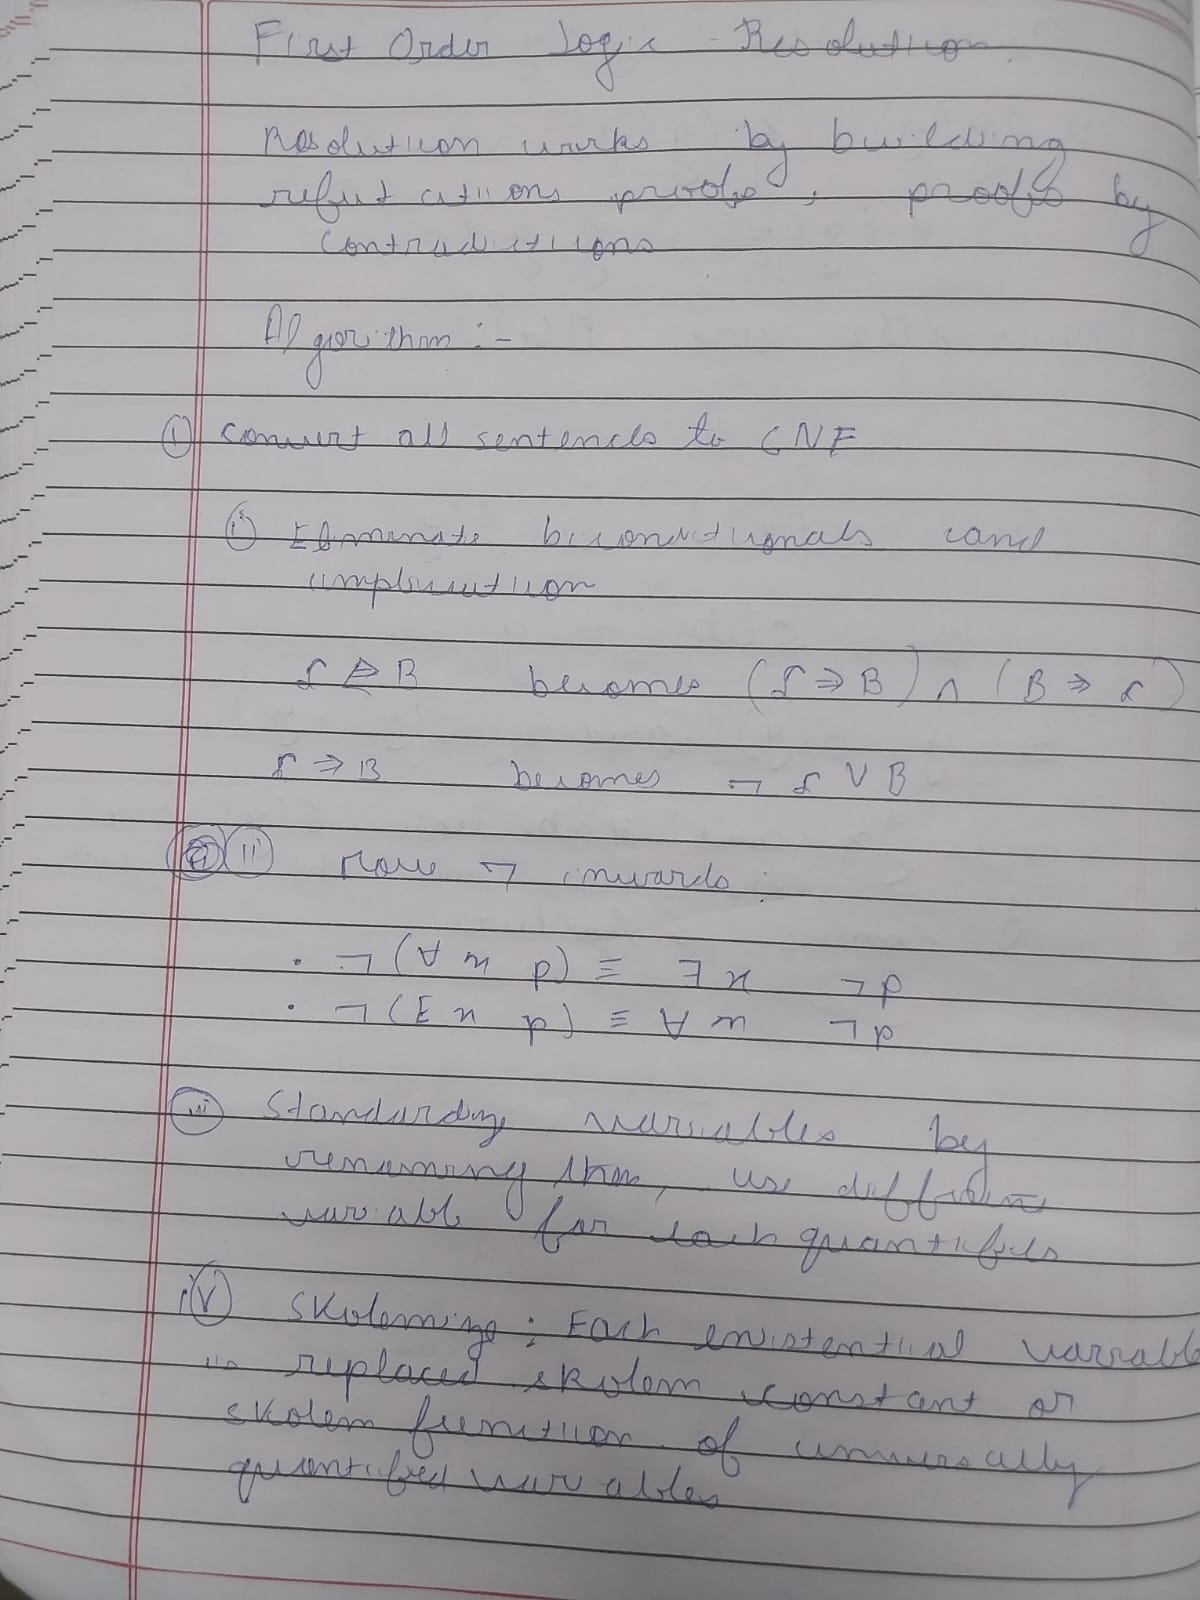 First Order Logic - Resolution
Resolution works by building
refutations proofs, proofs by
contradictions
Algorithm :-
① Convert all sentences to CNF
ⓘ Eliminate biconditionals and
implication
α ⇔ B becomes (α ⇒ B) ∧ (B ⇒ α)
α ⇒ B becomes ¬ α V B
ⓘⓘ Move ¬ inwards :
• ¬ (∀ x p) ≡ ∃ x ¬ p
• ¬ (∃ x p) ≡ ∀ x ¬ p
iii Standardize variables by
renaming them, use different
variable for each quantifiers
iv Skolemize : Each existential variable
is replaced skolem constant or
skolem function of universally
quantified variables